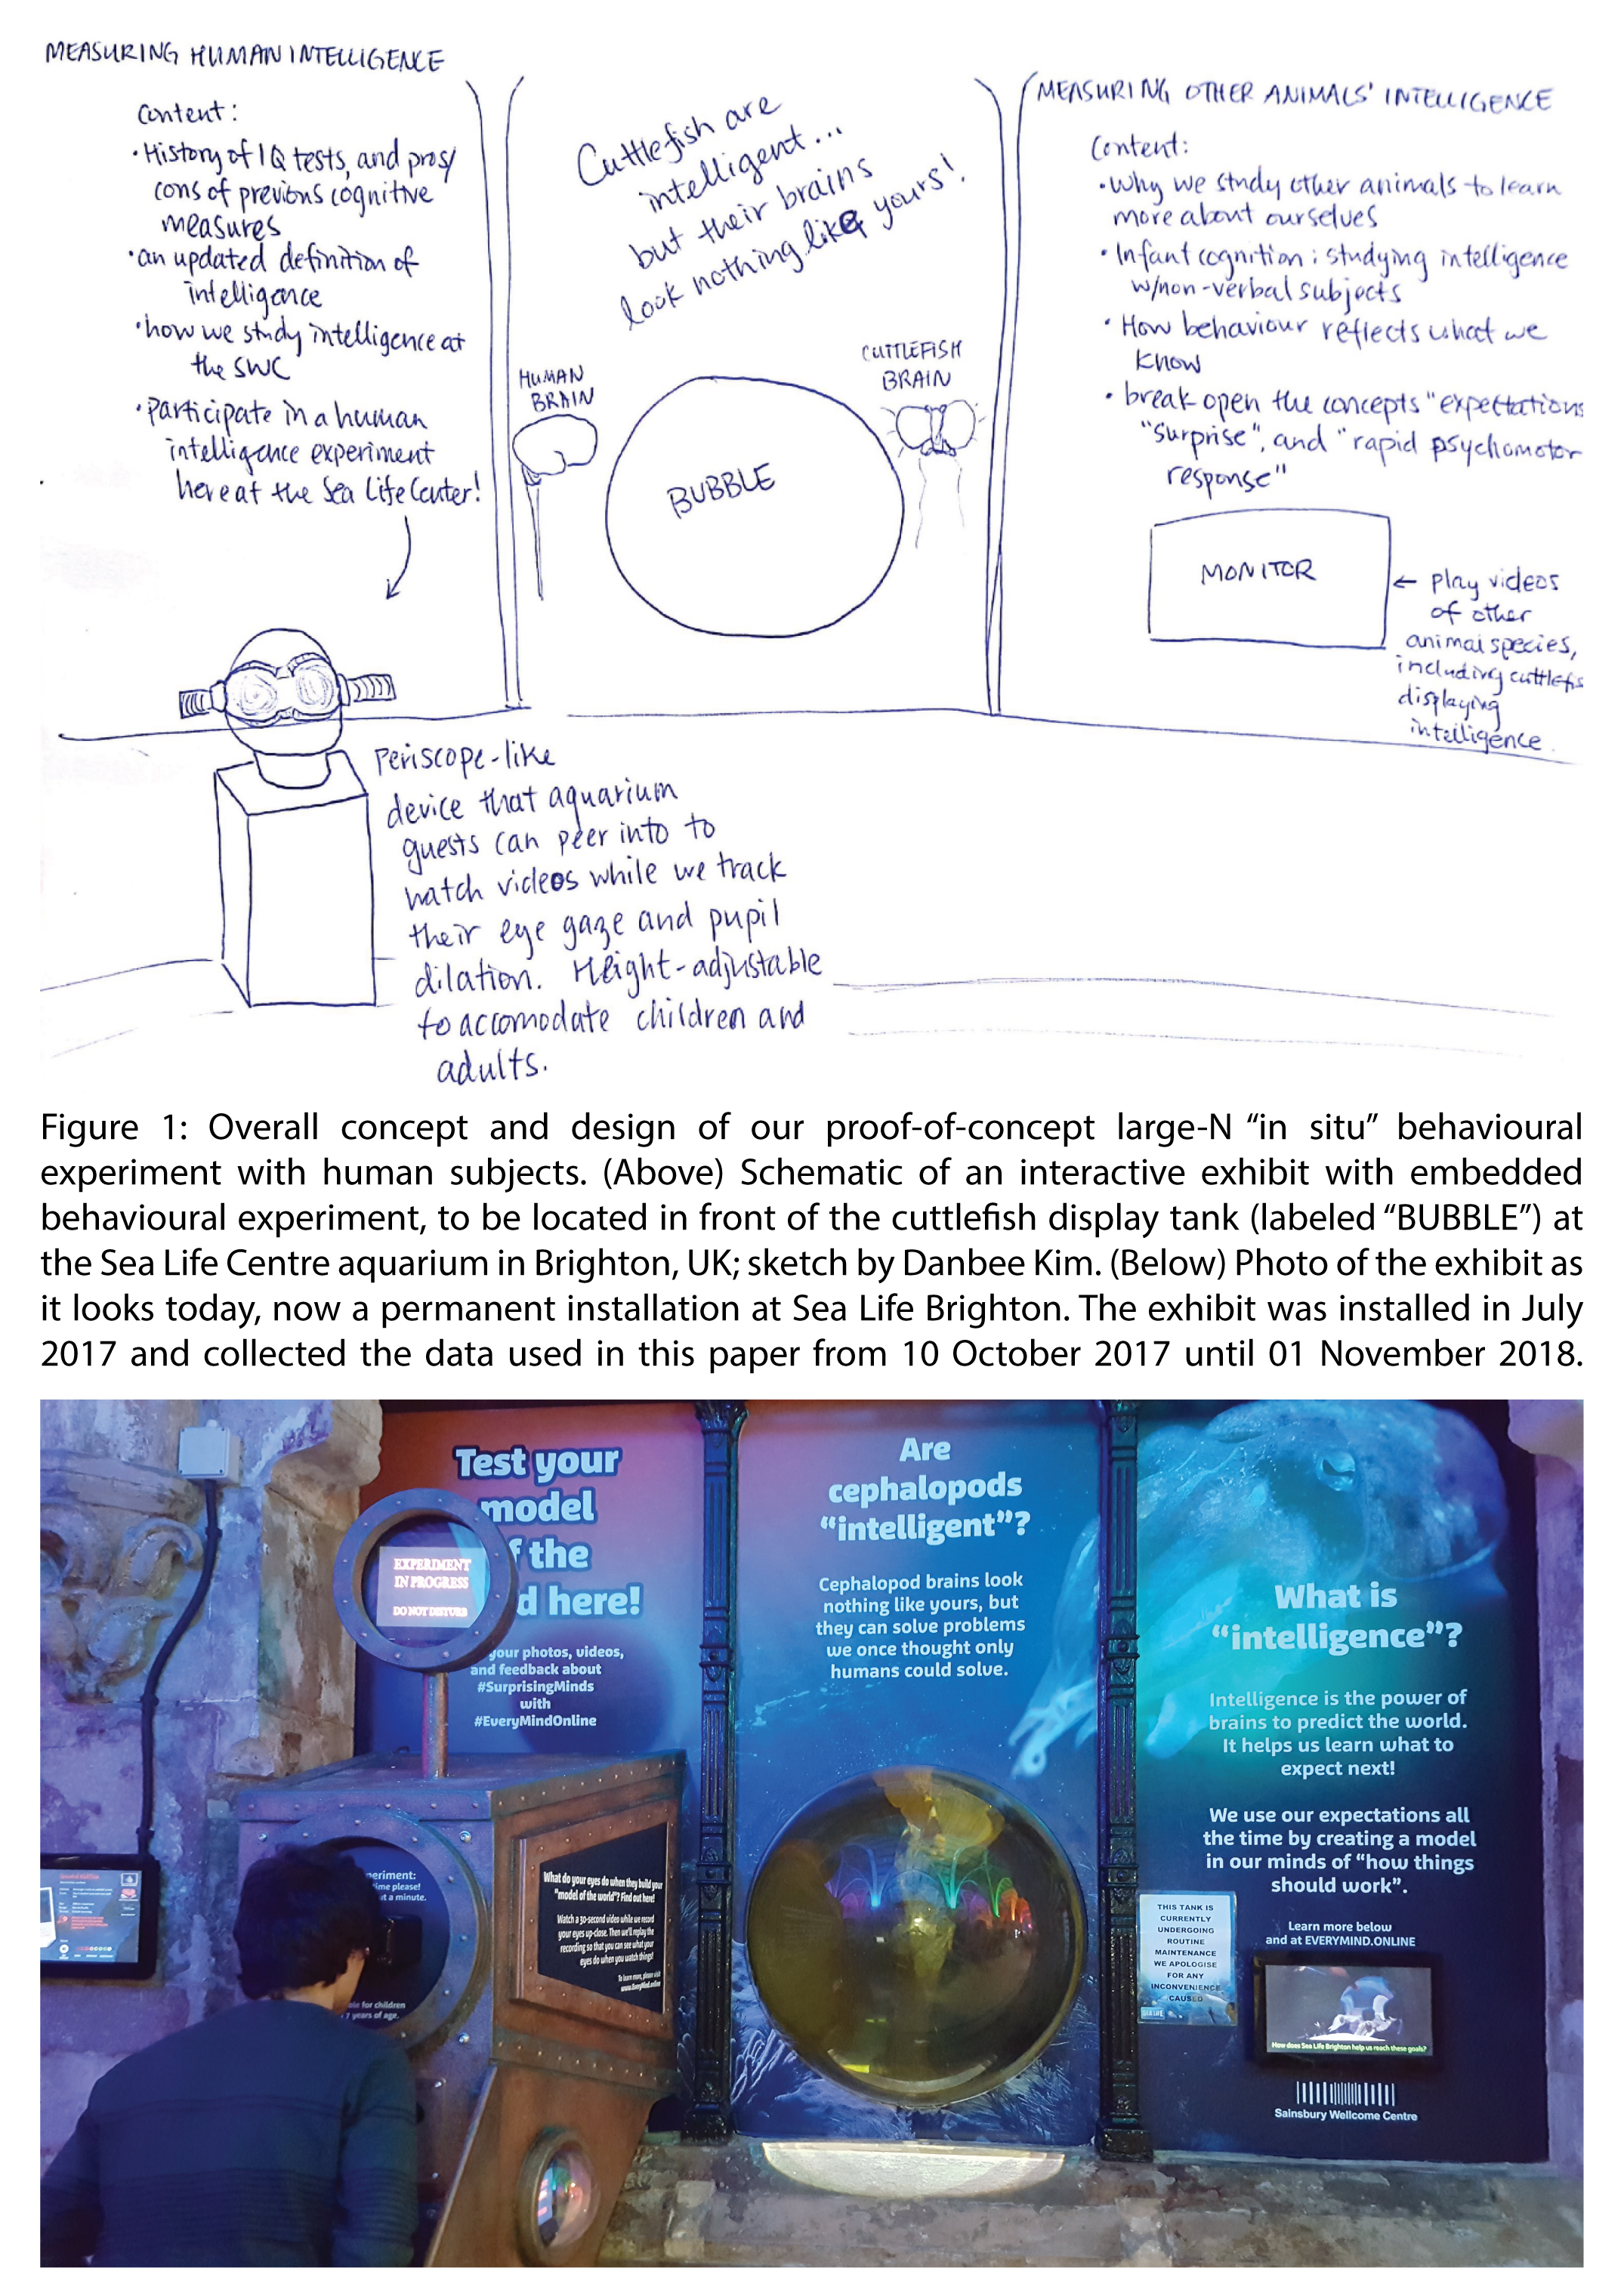 MEASURING HUMAN INTELLIGENCE
Content:
• History of IQ tests, and pros/
cons of previous cognitive
measures
• an updated definition of
intelligence
• how we study intelligence at
the SWC
• Participate in a human
intelligence experiment
here at the Sea Life Center!
Cuttlefish are
intelligent...
but their brains
look nothing like yours!
HUMAN
BRAIN
BUBBLE
CUTTLEFISH
BRAIN
MEASURING OTHER ANIMALS' INTELLIGENCE
Content:
• Why we study other animals to learn
more about ourselves
• Infant cognition: studying intelligence
w/non-verbal subjects
• How behaviour reflects what we
know
• break open the concepts "expectations
"surprise", and "rapid psychomotor
response"
MONITOR
← play videos
of other
animal species,
including cuttlefis
displaying
intelligence.
Periscope-like
device that aquarium
guests can peer into to
watch videos while we track
their eye gaze and pupil
dilation. Height-adjustable
to accomodate children and
adults.
Figure 1: Overall concept and design of our proof-of-concept large-N “in situ” behavioural
experiment with human subjects. (Above) Schematic of an interactive exhibit with embedded
behavioural experiment, to be located in front of the cuttlefish display tank (labeled “BUBBLE”) at
the Sea Life Centre aquarium in Brighton, UK; sketch by Danbee Kim. (Below) Photo of the exhibit as
it looks today, now a permanent installation at Sea Life Brighton. The exhibit was installed in July
2017 and collected the data used in this paper from 10 October 2017 until 01 November 2018.
Test your
model
f the
d here!
EXPERIMENT
IN PROGRESS
DO NOT DISTURB
your photos, videos,
and feedback about
#SurprisingMinds
with
#EveryMindOnline
periment:
ime please!
at a minute.
ble for children
7 years of age.
What do your eyes do when they build your
"model of the world"? Find out here!
Watch a 30-second video while we record
your eyes up-close. Then we'll replay the
recording so that you can see what your
eyes do when you watch things!
To learn more, please visit
www.EveryMind.online
Are
cephalopods
“intelligent”?
Cephalopod brains look
nothing like yours, but
they can solve problems
we once thought only
humans could solve.
What is
“intelligence”?
Intelligence is the power of
brains to predict the world.
It helps us learn what to
expect next!
We use our expectations all
the time by creating a model
in our minds of “how things
should work”.
Learn more below
and at EVERYMIND.ONLINE
THIS TANK IS
CURRENTLY
UNDERGOING
ROUTINE
MAINTENANCE
WE APOLOGISE
FOR ANY
INCONVENIENCE
CAUSED
How does Sea Life Brighton help us reach these goals?
Sainsbury Wellcome Centre